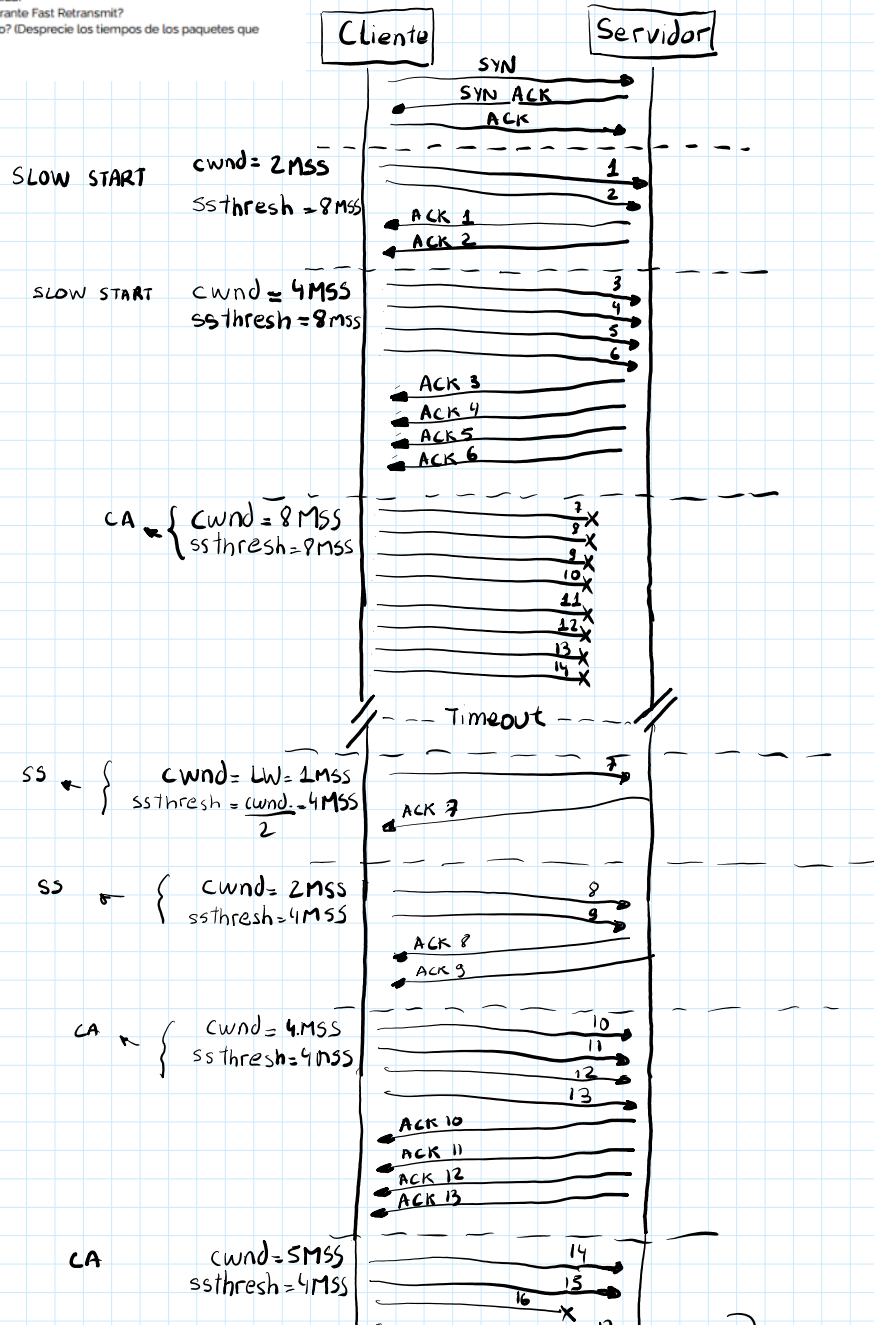 rante Fast Retransmit?
o? (Desprecie los tiempos de los paquetes que
Cliente
Servidor
SYN
SYN ACK
ACK
SLOW START
cwnd = 2MSS
ssthresh = 8MSS
1
2
ACK 1
ACK 2
SLOW START
cwnd = 4MSS
ssthresh = 8MSS
3
4
5
6
ACK 3
ACK 4
ACK 5
ACK 6
CA
cwnd = 8MSS
ssthresh = 8MSS
7
8
9
10
11
12
13
14
Timeout
SS
cwnd = LW = 1MSS
ssthresh = cwnd/2 = 4MSS
7
ACK 7
SS
cwnd = 2MSS
ssthresh = 4MSS
8
9
ACK 8
ACK 9
CA
cwnd = 4.MSS
ssthresh = 4MSS
10
11
12
13
ACK 10
ACK 11
ACK 12
ACK 13
CA
cwnd = 5MSS
ssthresh = 4MSS
14
15
16